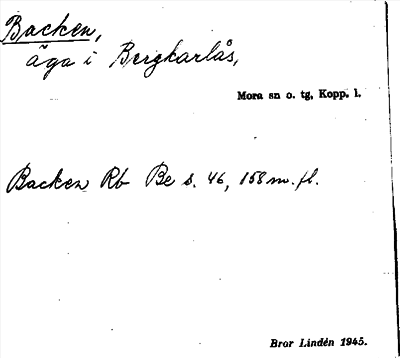 Backen,
äga i Bergkarlås,
Mora sn o. tg, Kopp. l.
Backen Rb Be s. 46, 158 m. fl.
Bror Lindén 1945.